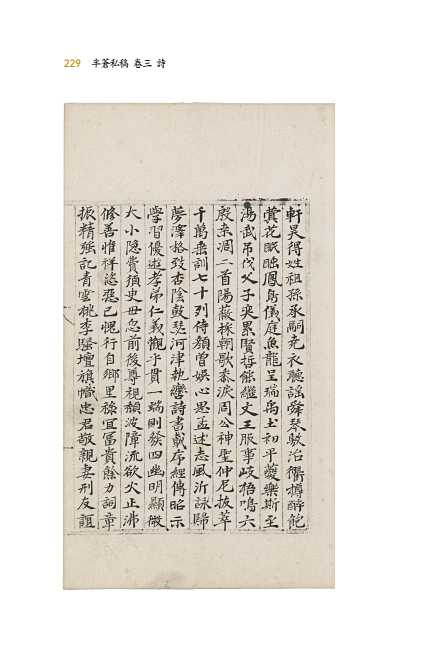 229 半蒼私稿 卷三 詩
軒昊得姓祖孫承嗣堯衣聽謠舜琴敷治衢樽醉飽
蓂花眠鳳鳥儀庭魚龍呈瑞禹土初平夔樂斯至
湯武弔伐父子哭累賢哲能繼文王服事岐梧鳴六
殷來凋二首陽薇採朝歌黍淚周公神聖仲尼拔萃
千萬垂訓七十列侍顏曾娛心思孟述志風沂詠歸
夢澤格致杏陰鼓瑟河津執轡詩書載序經傳昭示
學習優遊孝弟仁義觀乎貫一端則發四幽明顯微
大小隱費須臾毋忽前後尊視頹波障流欲火止沸
修善惟祥恣惡己愧行自鄉里祿宜富貴餘力詞章
振精強記青雲桃李騷壇旗幟忠君敬親妻刑友誼